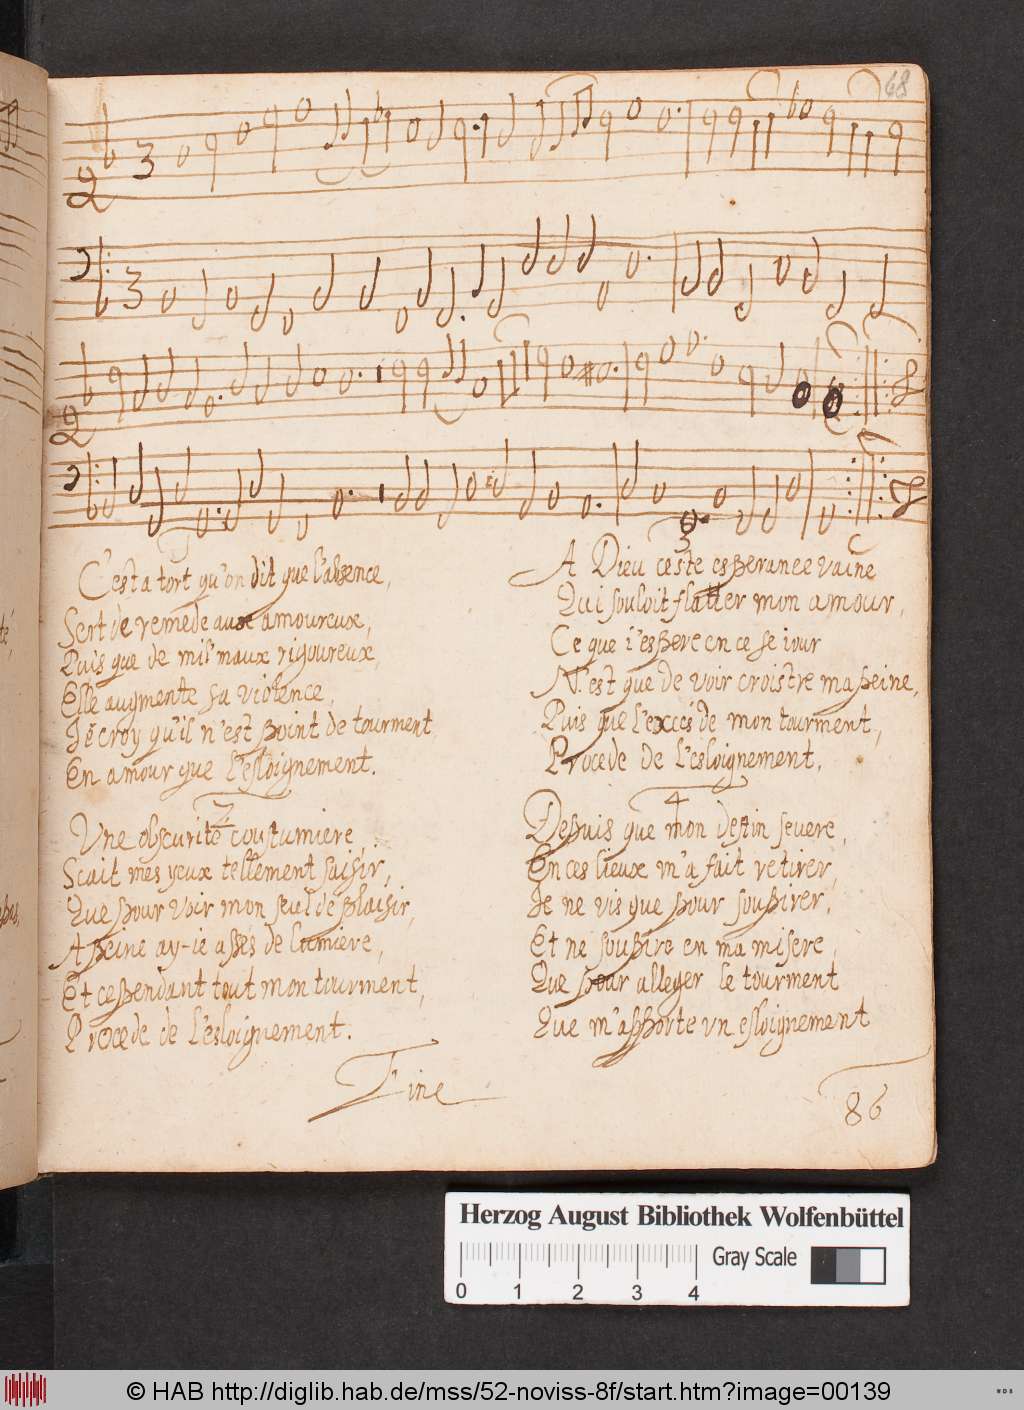 68
3
3
C'est a tort qu'on dit que l'absence,
Sert de remede aux amoureux,
Puis que de mil' maux rigoureux,
Elle augmente sa violence,
Je croy qu'il n'est point de tourment
En amour que l'esloignement.
2
Vne obscurité coustumiere,
Scait mes yeux tellement saisir,
Que pour voir mon seul de plaisir,
A peine ay-ie assés de lumiere,
Et cependant tout mon tourment,
Procede de L'esloignement.
3
A Dieu ceste esperance vaine
Qui souloit flatter mon amour,
Ce que i'espere en ce se iour
N'est que de voir croistre ma peine,
Puis que l'excés de mon tourment,
Procede de L'esloignement,
4
Depuis que mon destin seuere,
En ces lieux m'a fait retirer,
Je ne vis que pour soupirer,
Et ne soupire en ma misere,
Que pour alleger le tourment
Que m'apporte vn esloignement
Fine
86
Herzog August Bibliothek Wolfenbüttel
Gray Scale
0 1 2 3 4
© HAB http://diglib.hab.de/mss/52-noviss-8f/start.htm?image=00139